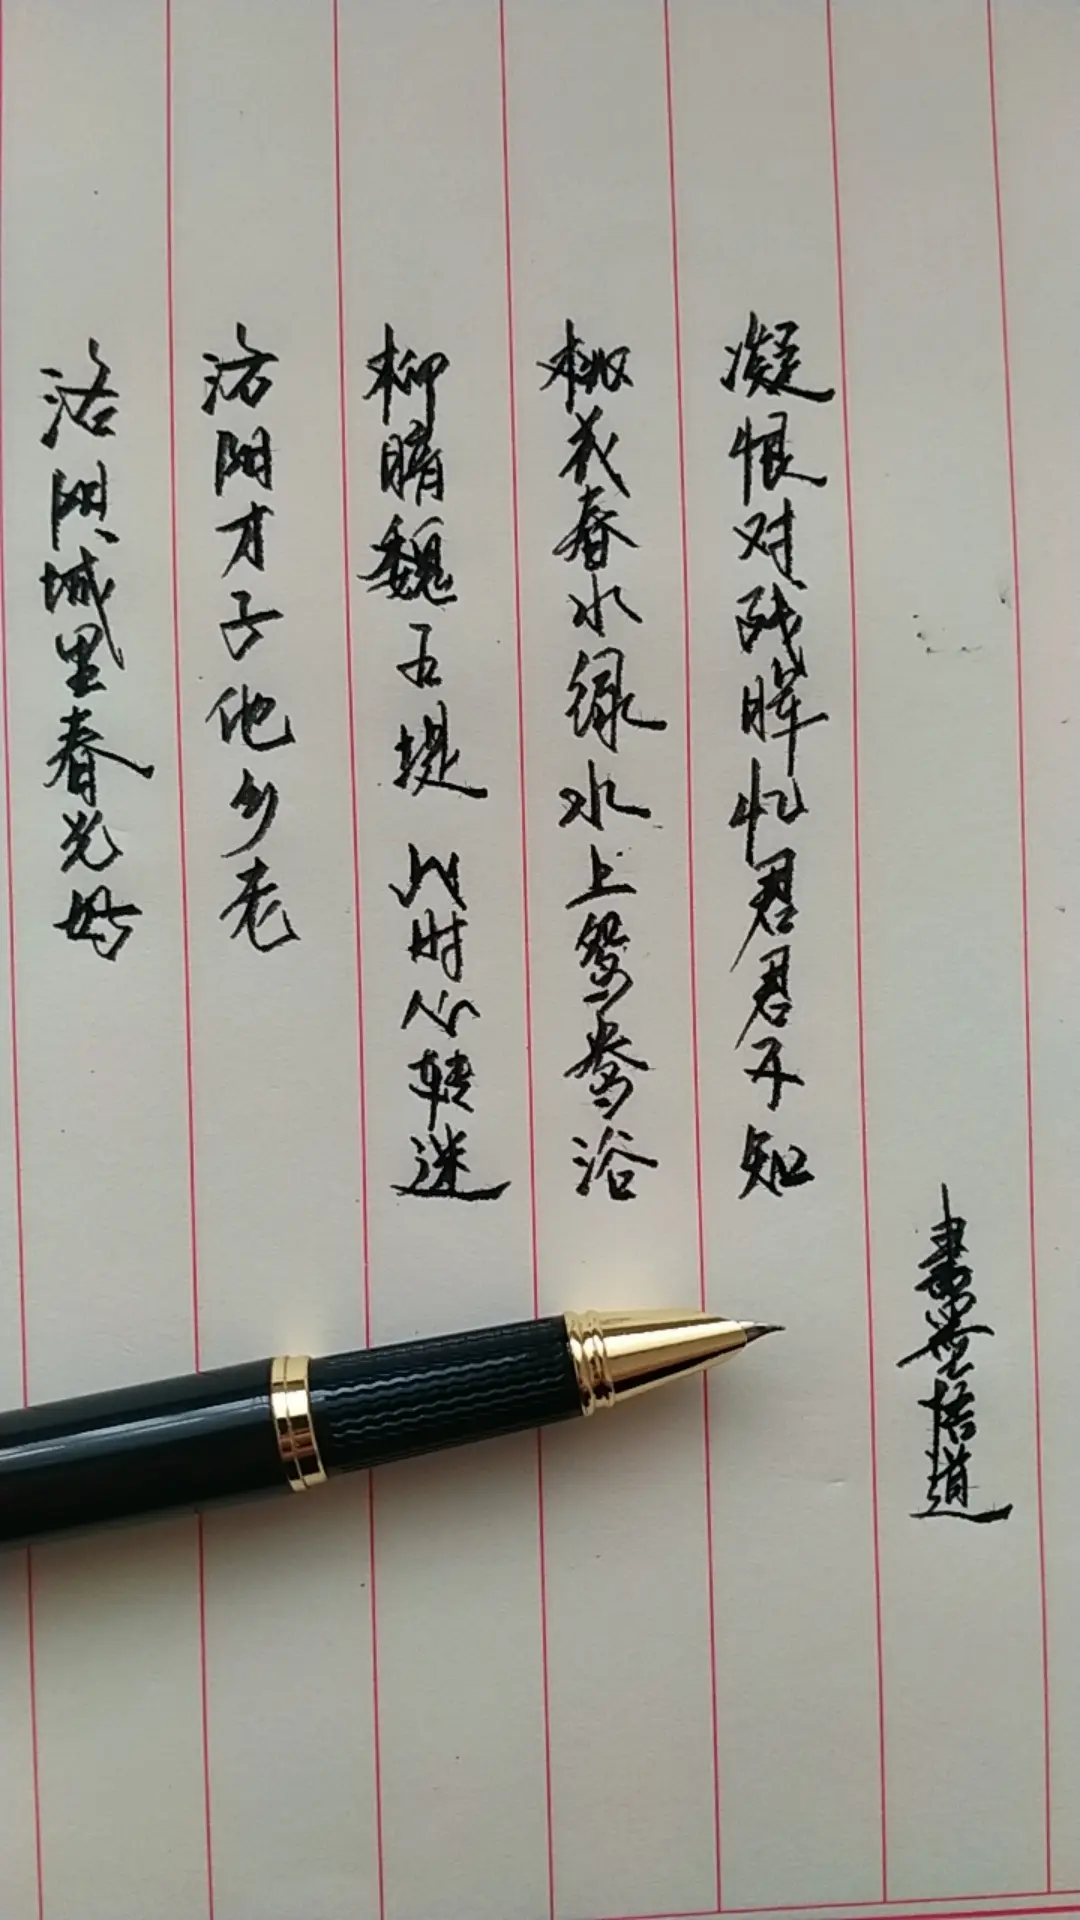 洛阳城里春光好
洛阳才子他乡老
柳暗魏王堤 此时心转迷
桃花春水绿水上鸳鸯浴
凝恨对残晖忆君君不知
悟道